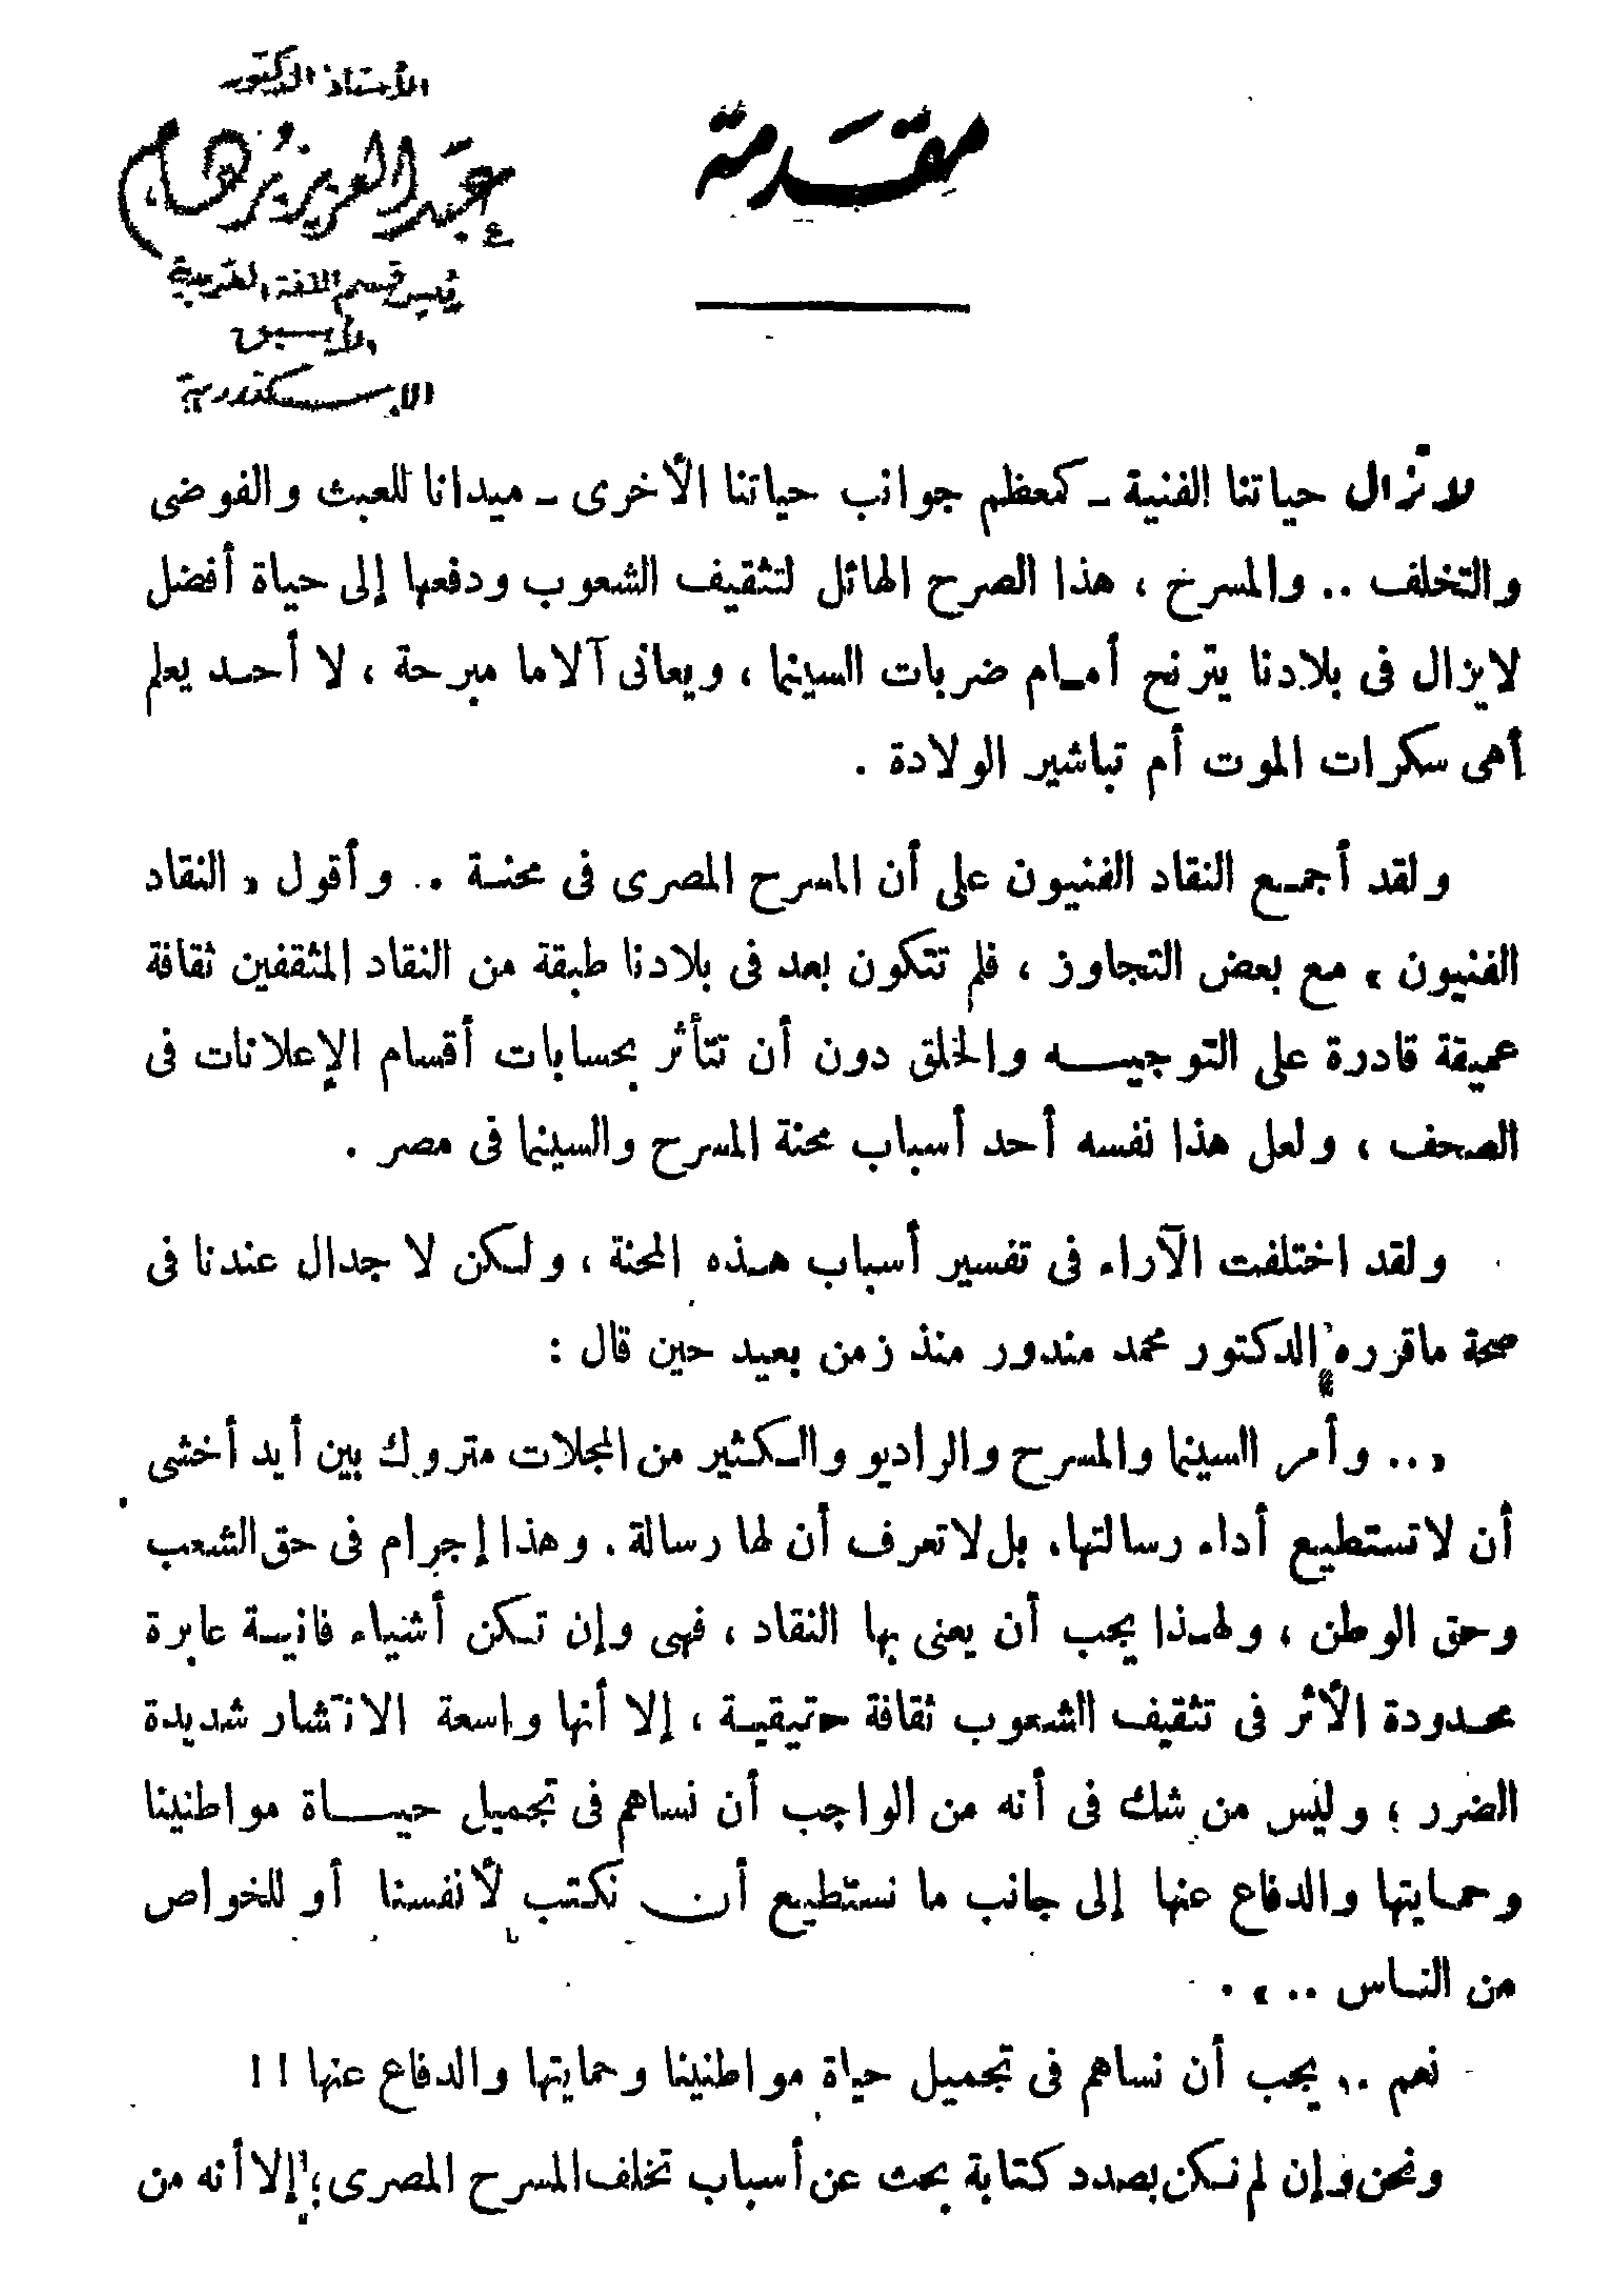 مقدمة
الأستاذ الدكتور
عبد العزيز برهام
رئيس قسم اللغة العربية
الأسبق
الإسكندرية
لا تزال حياتنا الفنية ـ كمعظم جوانب حياتنا الأخرى ـ ميدانا للعبث والفوضى
والتخلف .. والمسرح ، هذا الصرح الهائل لتثقيف الشعوب ودفعها إلى حياة أفضل
لا يزال فى بلادنا يترنح أمام ضربات السينما ، ويعانى آلاما مبرحة ، لا أحد يعلم
أهى سكرات الموت أم تباشير الولادة .
ولقد أجمع النقاد الفنيون على أن المسرح المصرى فى محنة .. وأقول « النقاد
الفنيون » مع بعض التجاوز ، فلم تتكون بعد فى بلادنا طبقة من النقاد المثقفين ثقافة
عميقة قادرة على التوجيه والخلق دون أن تتأثر بحسابات أقسام الإعلانات فى
الصحف ، ولعل هذا نفسه أحد أسباب محنة المسرح والسينما فى مصر .
ولقد اختلفت الآراء فى تفسير أسباب هذه المحنة ، ولكن لا جدال عندنا فى
صحة ماقرره الدكتور محمد مندور منذ زمن بعيد حين قال :
« .. وأمر السينما والمسرح والراديو والكثير من المجلات متروك بين أيد أخشى
أن لا تستطيع أداء رسالتها، بل لا تعرف أن لها رسالة . وهذا إجرام فى حق الشعب
وحق الوطن ، ولهذا يجب أن يعنى بها النقاد ، فهى وإن تكن أشياء فانية عابرة
محدودة الأثر فى تثقيف الشعوب ثقافة حقيقية ، إلا أنها واسعة الانتشار شديدة
الضرر ؛ وليس من شك فى أنه من الواجب أن نساهم فى تجميل حياة مواطنينا
وحمايتها والدفاع عنها إلى جانب ما نستطيع أن نكتب لأنفسنا أو للخواص
من الناس .. » .
نعم .. يجب أن نساهم فى تجميل حياة مواطنينا وحمايتها والدفاع عنها !!
ونحن وإن لم نكن بصدد كتابة بحث عن أسباب تخلف المسرح المصرى ؛ إلا أنه من